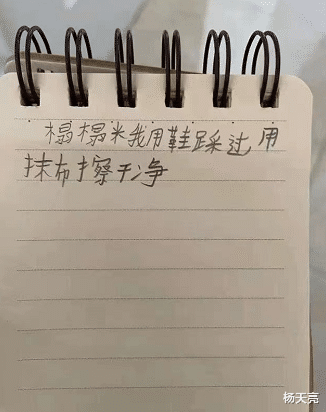 榻榻米我用鞋踩过用
抹布擦干净
杨天亮